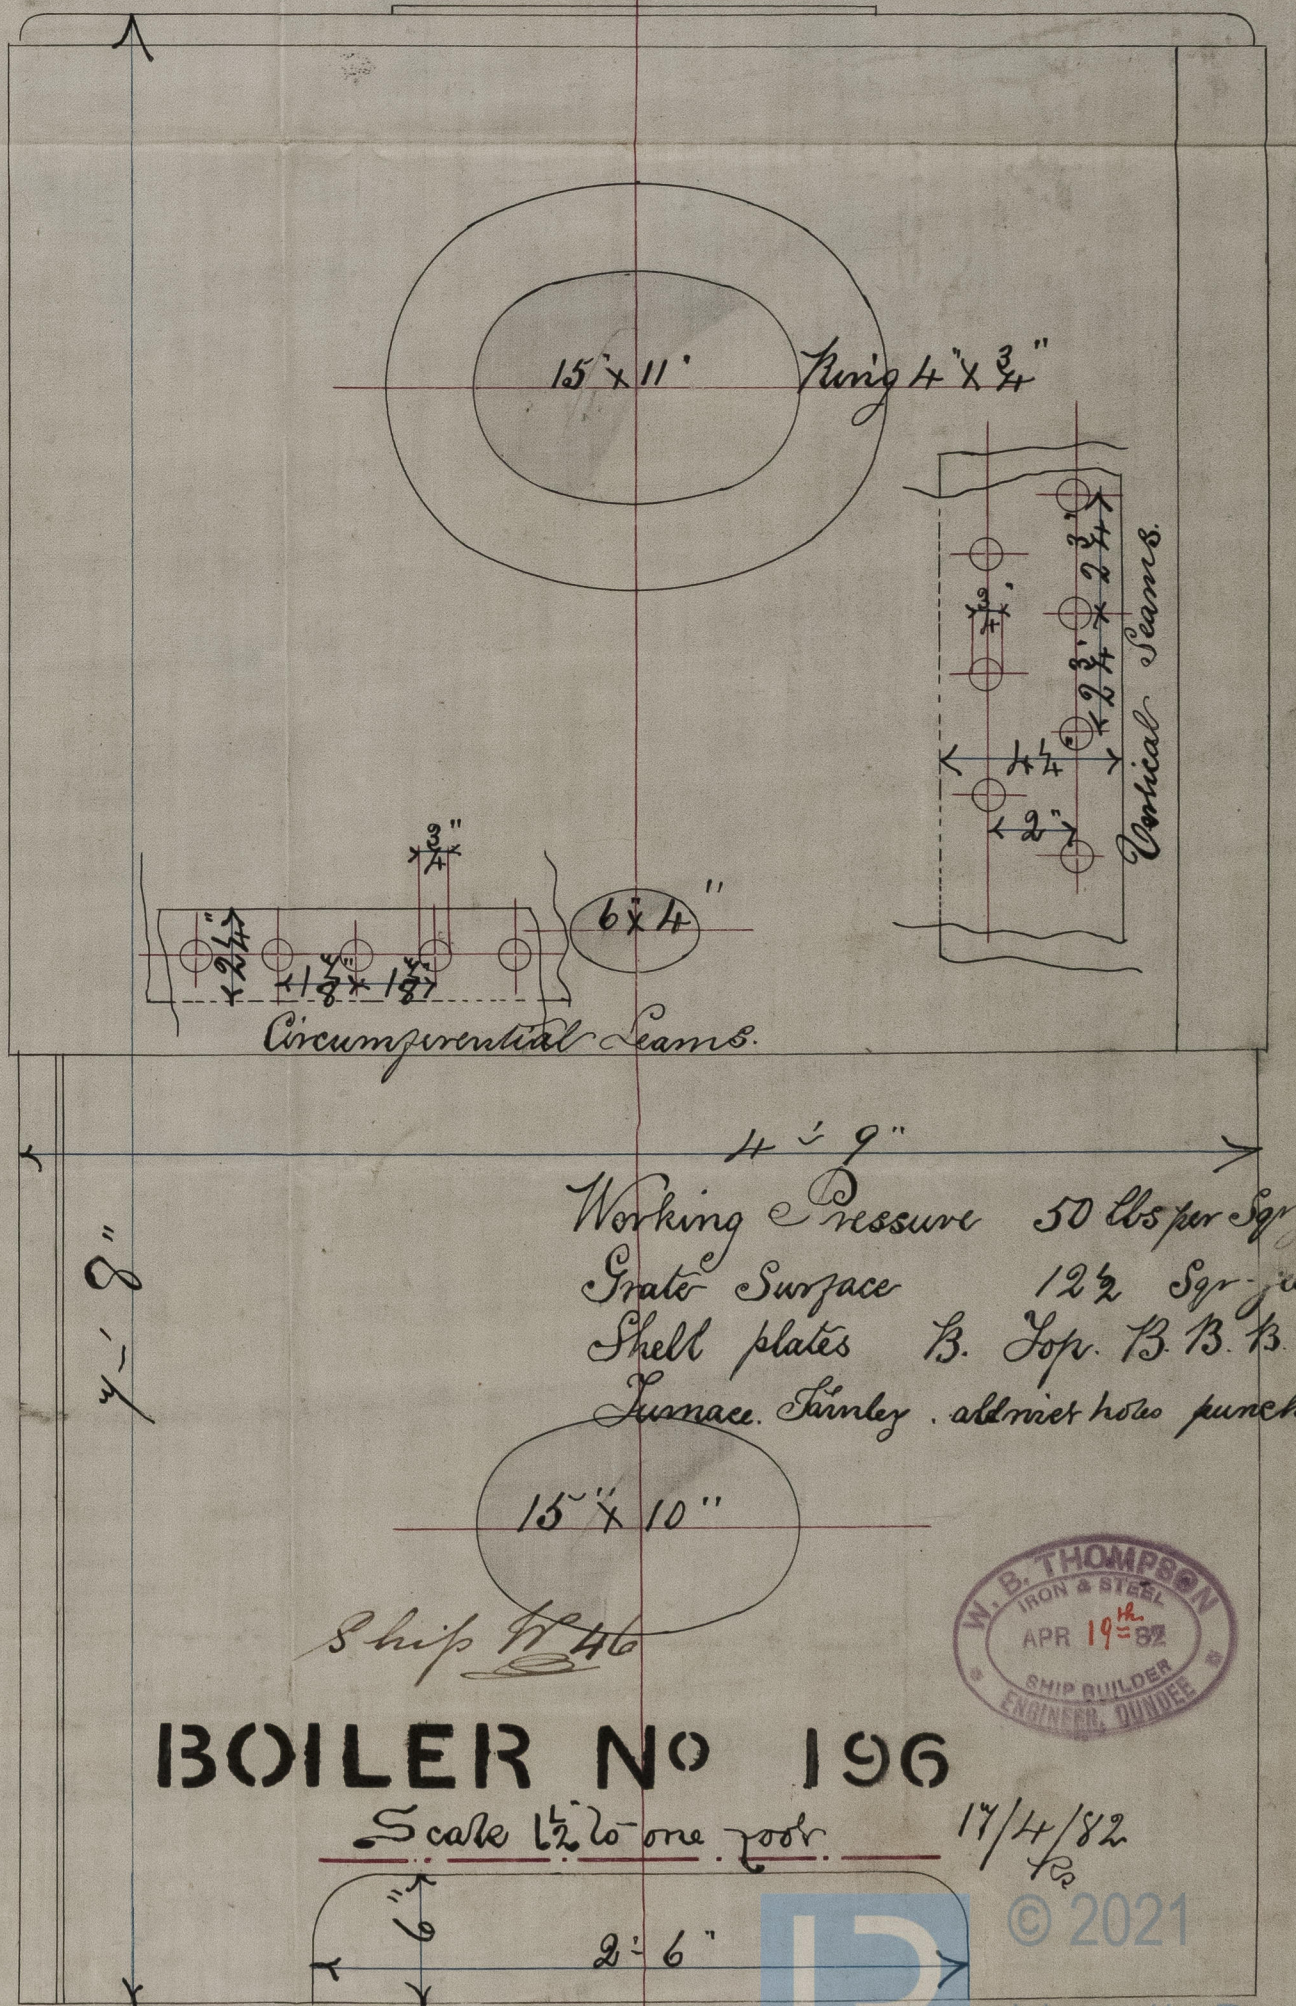 15" x 11"
Ring 4" x 3/4"
2 3/4"
3/4"
2 3/4"
Vertical Seams.
4 1/4"
2"
3/4"
6" x 4"
2 1/4"
1 7/8" 1 7/8"
Circumferential Seams.
4'-9"
7'-8"
Working Pressure 50 lbs per Sqr
Grate Surface 12 1/2 Sqr-
Shell plates B. Top. B. B. B.
Furnace. Farnley. all rivet holes
15" x 10"
Ship No 46
W. B. THOMPSON
IRON & STEEL
APR 19th 82
SHIP BUILDER
ENGINEER, DUNDEE
BOILER No 196
Scale 1 1/2" to one foot
17/4/82
6"
2'-6"
© 2021